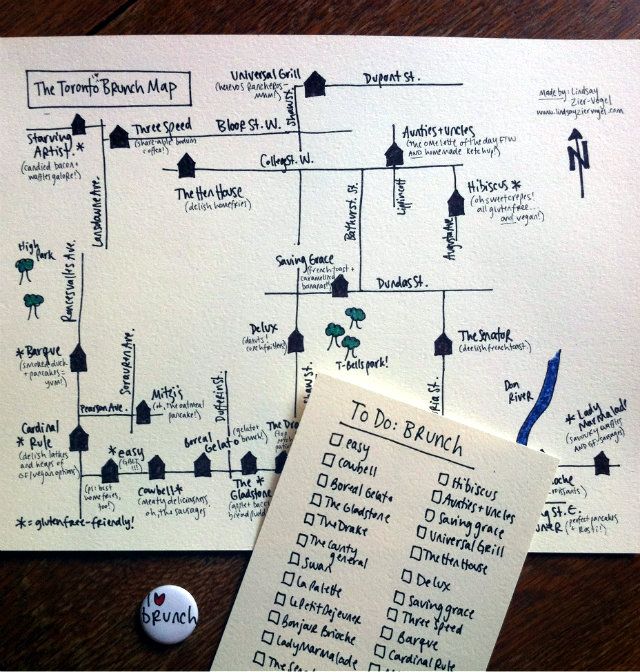 The Toronto Brunch Map
Universal Grill
(huevos Rancheros -
mmm!)
Dupont St.
Shaw St.
made by: Lindsay
Zier-Vogel
www.lindsayziervogel.com
N
Starving
Artist. *
(candied bacon +
waffles galore!)
Three Speed
(share-able bodum
coffee!)
Bloor St. W.
Aunties + Uncles
(the omelette of the day FTW
AND homemade ketchup!)
College St. W.
The Hen House
(delish homefries)
Lansdowne Ave.
Bathurst. St.
Lippincott
Augusta Ave.
Hibiscus *
(oh sweet crepes!
all gluten free...
and vegan!)
High
Park
Roncesvalles Ave.
Saving Grace
(french toast +
caramelized
bananas!!)
Dundas St.
Delux
(donuts!
* Barque
(smoked duck
+ pancakes =
yum!)
Sorauren Ave.
T-Bells park!
The Senator
(deelish french toast)
Don
River
Pearson Ave.
Mitzi's
(oh, the oatmeal
pancake!)
Dufferin St.
Cardinal
* Rule
(delish latkes
and heaps of
GF/vegan options)
* easy
(GBET
!!!)
(ps: best
home fries,
too!)
Cowbell *
(meaty deliciousness
oh, the sausages
Boreal
Gelato
(gelato
brunch!)
The *
Gladstone
The Dra
* Lady
Marmalade
(savoury waffles
AND GF/
oche
g St. E.
(perfect pancakes
+ Rosti!)
* = gluten free-friendly!
I
brunch
To Do: Brunch
easy
Cowbell
Boreal Gelato
The Gladstone
The Drake
The County
general
Swan
La Palette
Le Petit Dejeuner
Bonjour Brioche
Lady Marmalade
The Sen
Hibiscus
Aunties + Uncles
Saving grace
Universal Grill
The Hen House
Delux
Saving grace
Three Speed
Barque
Cardinal Rule